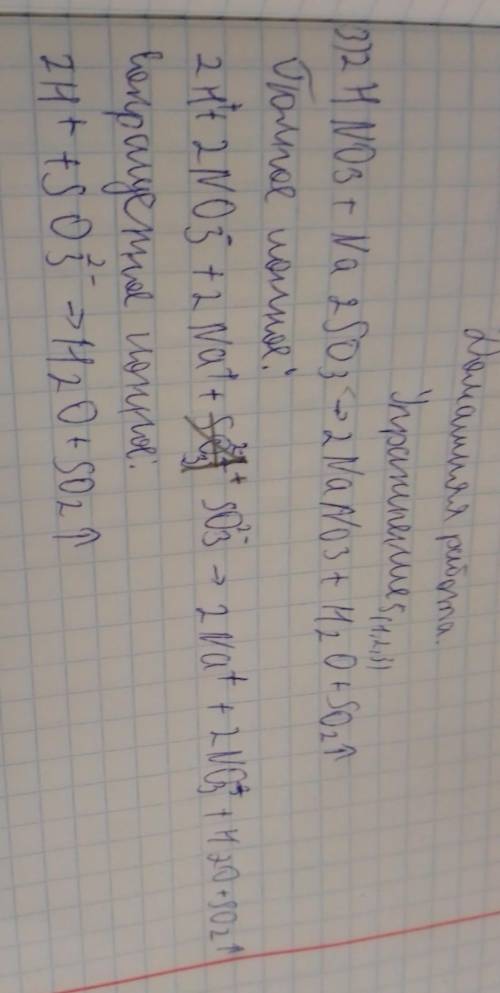 Домашняя работа.
Упражнение 5(1,2,3)
3) 2HNO3 + Na2SO3 → 2NaNO3 + H2O + SO2↑
Полное ионное:
2H⁺ + 2NO3⁻ + 2Na⁺ + SO3²⁻ → 2Na⁺ + 2NO3⁻ + H2O + SO2↑
Сокращенное ионное:
2H⁺ + SO3²⁻ → H2O + SO2↑